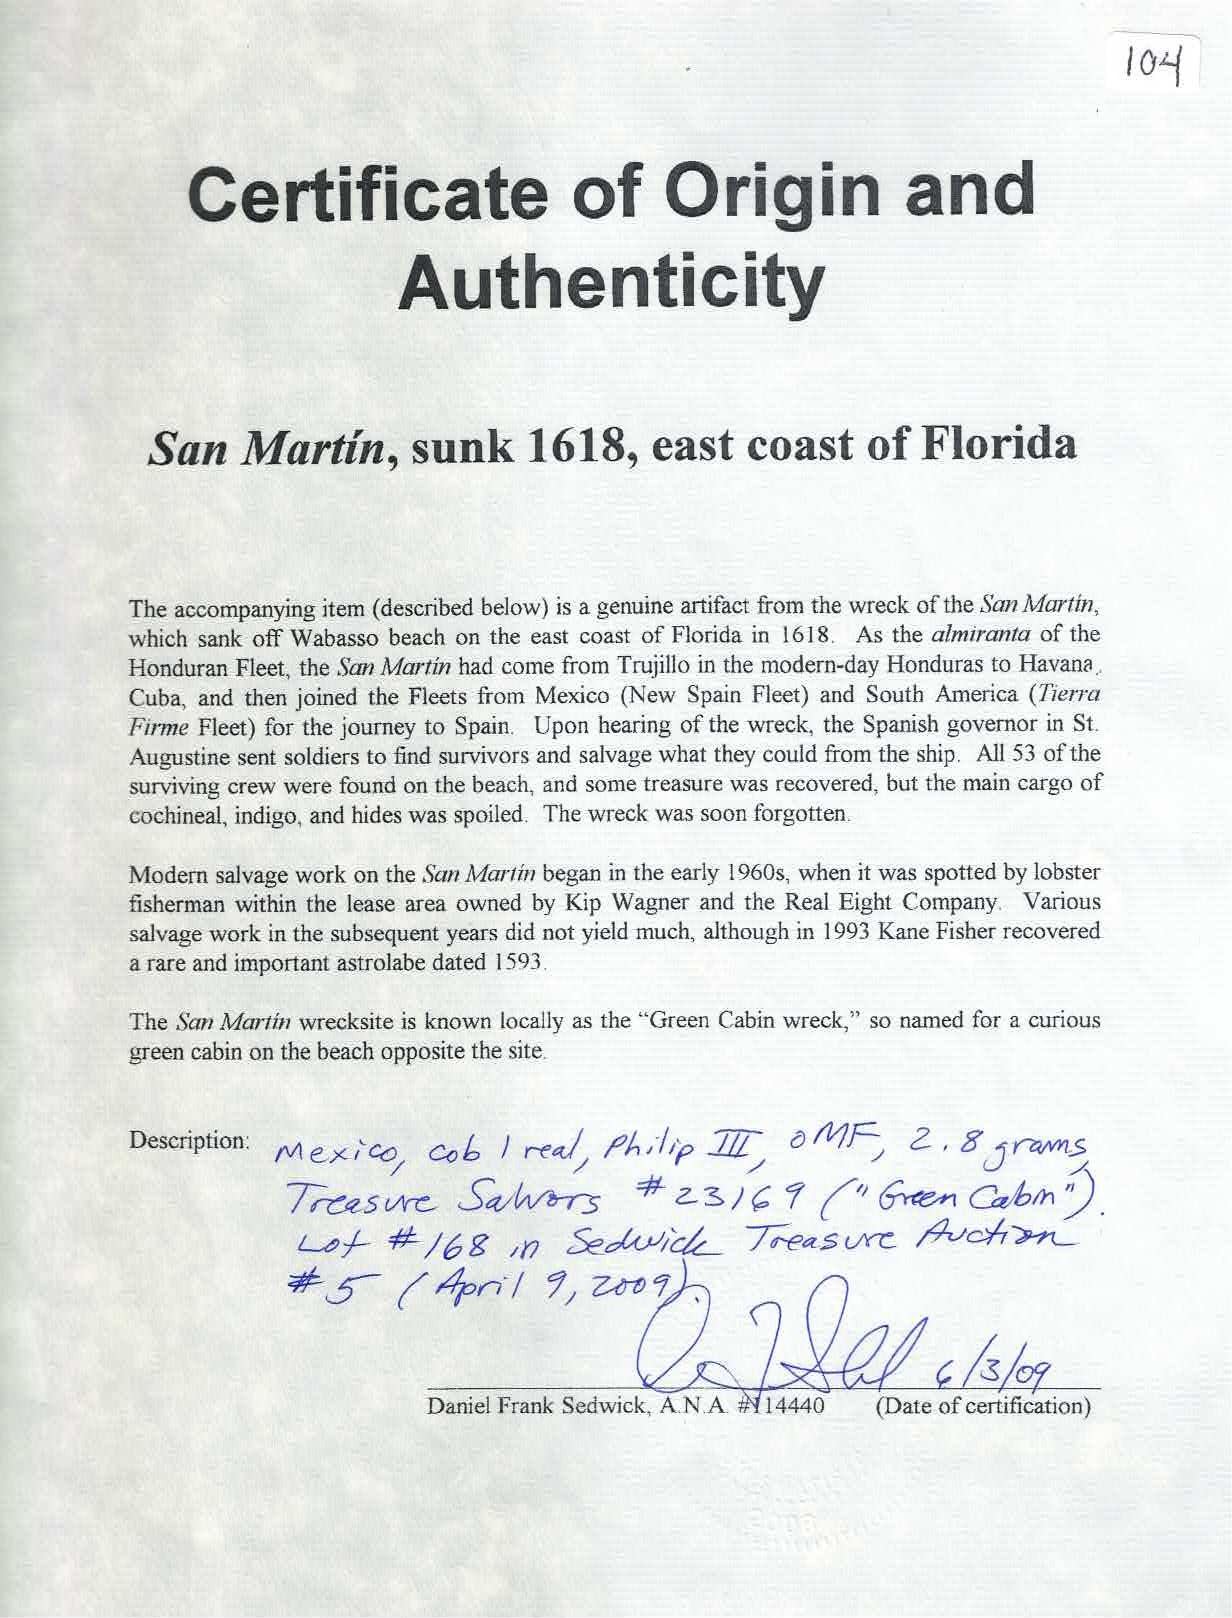 104
Certificate of Origin and
Authenticity
San Martín, sunk 1618, east coast of Florida
The accompanying item (described below) is a genuine artifact from the wreck of the San Martín,
which sank off Wabasso beach on the east coast of Florida in 1618. As the almiranta of the
Honduran Fleet, the San Martín had come from Trujillo in the modern-day Honduras to Havana,
Cuba, and then joined the Fleets from Mexico (New Spain Fleet) and South America (Tierra
Firme Fleet) for the journey to Spain. Upon hearing of the wreck, the Spanish governor in St.
Augustine sent soldiers to find survivors and salvage what they could from the ship. All 53 of the
surviving crew were found on the beach, and some treasure was recovered, but the main cargo of
cochineal, indigo, and hides was spoiled. The wreck was soon forgotten.
Modern salvage work on the San Martín began in the early 1960s, when it was spotted by lobster
fisherman within the lease area owned by Kip Wagner and the Real Eight Company. Various
salvage work in the subsequent years did not yield much, although in 1993 Kane Fisher recovered
a rare and important astrolabe dated 1593.
The San Martín wrecksite is known locally as the “Green Cabin wreck,” so named for a curious
green cabin on the beach opposite the site.
Description: Mexico, cob 1 real, Philip III, oMF, 2.8 grams,
Treasure Salvors #23169 ("Green Cabin").
Lot #168 in Sedwick Treasure Auction
#5 (April 9, 2009).
6/3/09
Daniel Frank Sedwick, A.N.A. #114440 (Date of certification)